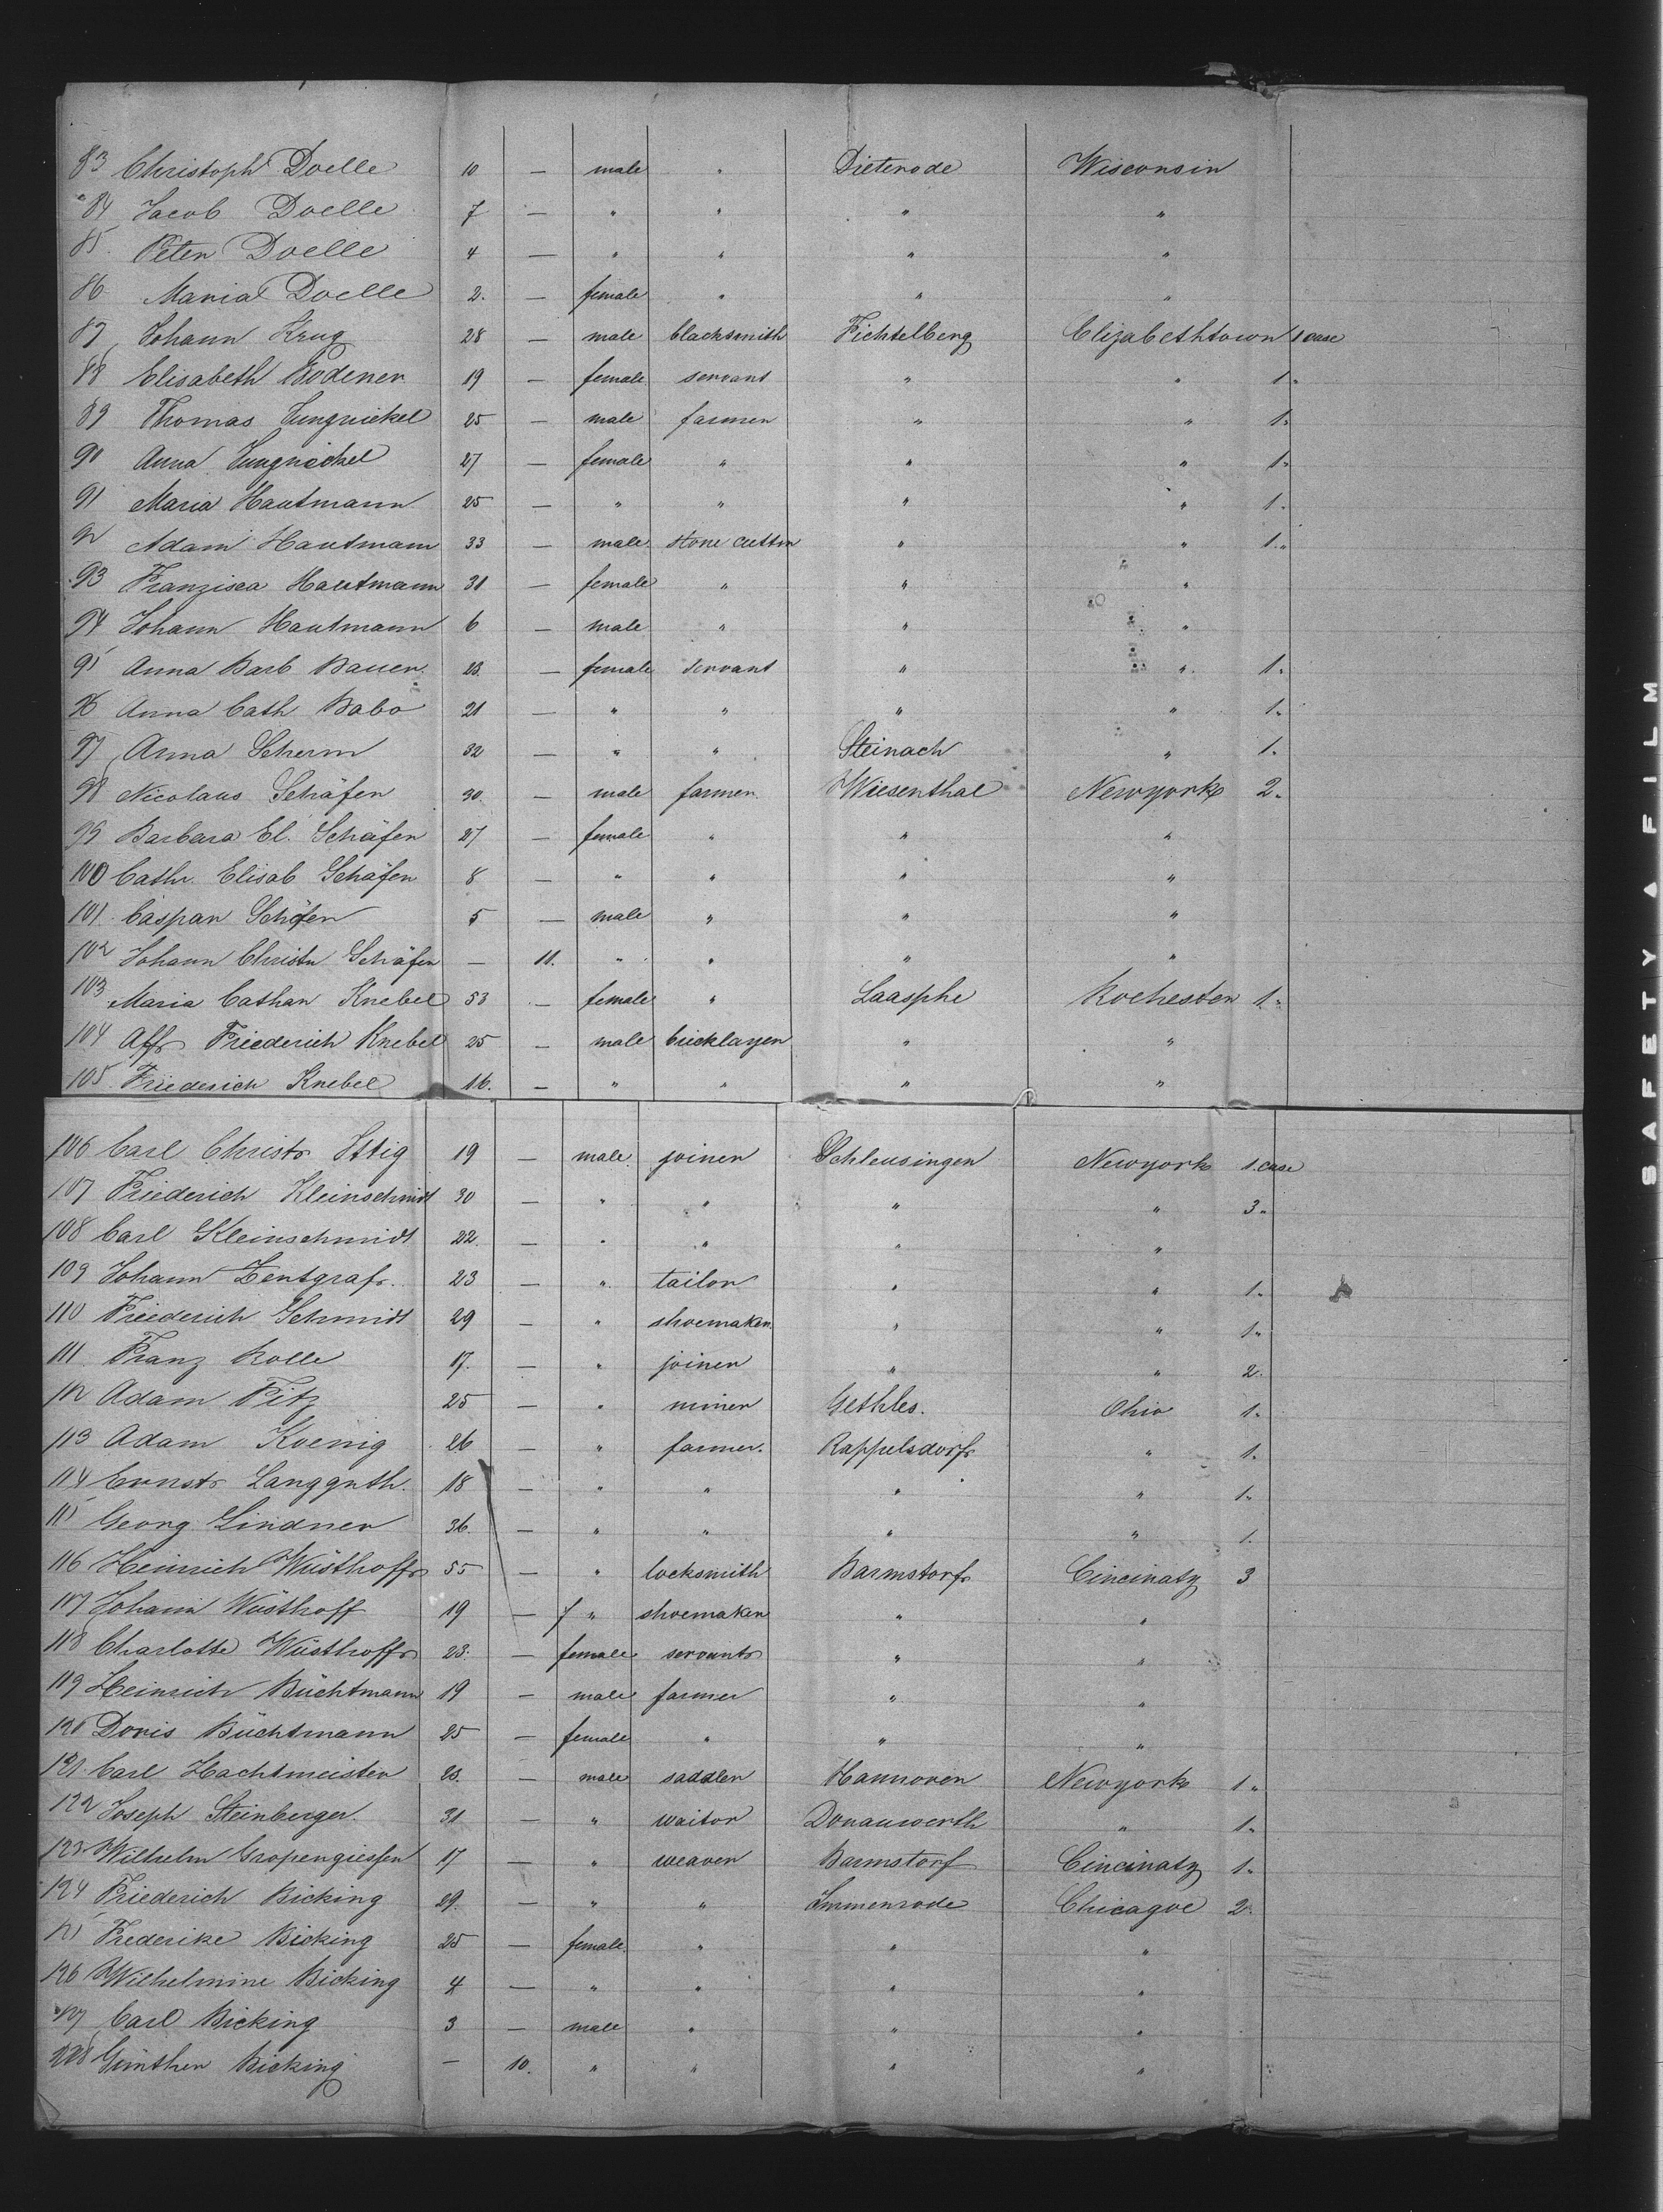 83 Christoph Doelle 10 — male " Dieterode Wisconsin
84 Jacob Doelle 7 — " " " "
85 Peter Doelle 4 — " " " "
86 Maria Doelle 2. — female " " "
87 Johann Krug 28 — male blacksmith Fichtelberg Elizabethtown 1 case
88 Elisabeth Bodener 19 — female servant " " 1 "
89 Thomas Jungnickel 25 — male farmer " " 1 "
90 Anna Jungnickel 27 — female " " " 1 "
91 Maria Hautmann 25 — " " " " 1 "
92 Adam Hautmann 33 — male stone cutter " " 1 "
93 Franzisca Hautmann 31 — female " " "
94 Johann Hautmann 6 — male " " "
95 Anna Barb Bauer 23. — female servant " " 1 "
96 Anna Cath Babo 21 — " " " " 1 "
97 Anna Scherm 32 — " " Steinach " 1 "
98 Nicolaus Schäfer 30. — male farmer Wiesenthal Newyork 2 "
99 Barbara El. Schäfer 27 — female " " "
100 Cathr. Elisab Schäfer 8 — " " " "
101. Caspar Schäfer 5 — male " " "
102 Johann Christn Schäfer — 11. " " " "
103 Maria Cathar Knebel 53 — female " Laasphe Rochester 1 "
104 Friederich Knebel 25 — male bricklayer " "
105. Friederich Knebel 16. — " " " "
106 Carl Christ Ittig 19 — male joiner Schleusingen Newyork 1 case
107 Friederich Kleinschmidt 30 — " " " " 3 "
108 Carl Kleinschmidt 22. — " " " "
109 Johann Zentgraf. 23 — " tailor " " 1 "
110 Friederich Schmidt 29 — " shoemaker " " 1 "
111 Franz Rolle 17. — " joiner " " 2 "
112 Adam Fitz 25 — " miner Gethles. Ohio 1 "
113 Adam Koenig 26 — " farmer. Rappelsdorf " 1 "
114 Ernst Langguth. 18 — " " " " 1 "
115 Georg Lindner 36. — " " " " 1.
116 Heinrich Wüsthoff 55 — " locksmith Barmstorf Cincinaty 3
117 Johann Wüsthoff 19 — " shoemaker " "
118 Charlotte Wüsthoff 23. — female servant " "
119 Heinrich Büchtmann 19 — male farmer " "
120 Doris Büchtmann 25 — female " " "
121. Carl Hachtmeister 23. — male saddler Hannover Newyork 1 "
122 Joseph Steinberger. 31 — " waitor Donauwerth " 1 "
123 Wilhelm Gropengiesser 17 — " weaver Barmstorf Cincinaty 1 "
124 Friederich Bicking 29. — " " Immenrode Chicagoe 2 "
125 Frederike Bicking 25 — female " " "
126 Wilhelmine Bicking 4 — " " " "
127 Carl Bicking 3 — male " " "
128 Günther Bicking — 10. " " " "
SAFETY A FILM